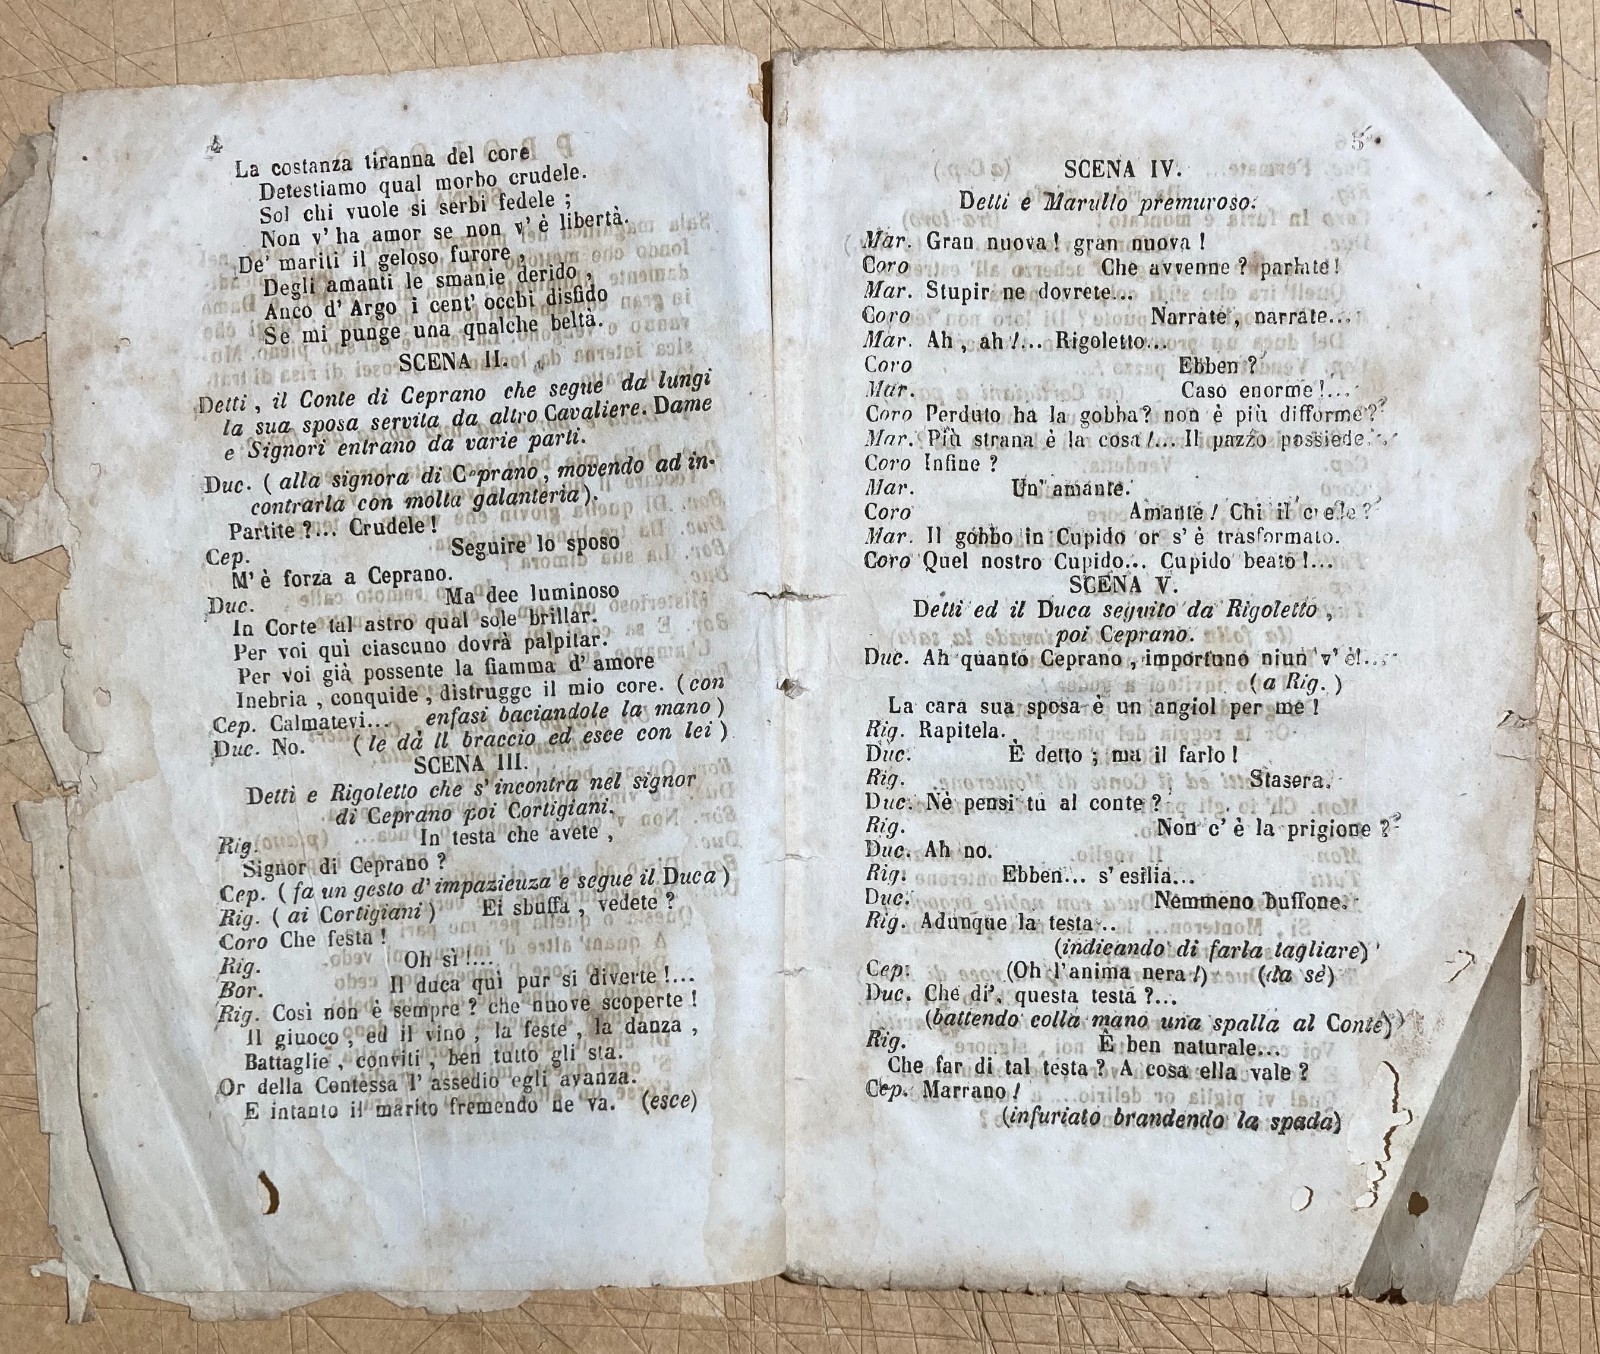 4
La costanza tiranna del core
Detestiamo qual morbo crudele.
Sol chi vuole si serbi fedele ;
Non v' ha amor se non v' è libertà.
De' mariti il geloso furore ,
Degli amanti le smanie derido ,
Anco d' Argo i cent' occhi disfido
Se mi punge una qualche beltà.
SCENA II.
Detti , il Conte di Ceprano che segue da lungi
la sua sposa servita da altro Cavaliere. Dame
e Signori entrano da varie parti.
Duc. ( alla signora di Ceprano , movendo ad in-
contrarla con molta galanteria ).
Partite ?... Crudele !
Cep. Seguire lo sposo
M' è forza a Ceprano.
Duc. Ma dee luminoso
In Corte tal astro qual sole brillar.
Per voi quì ciascuno dovrà palpitar.
Per voi già possente la fiamma d' amore
Inebria , conquide , distrugge il mio core. ( con
Cep. Calmatevi... enfasi baciandole la mano )
Duc. No. ( le dà il braccio ed esce con lei )
SCENA III.
Detti e Rigoletto che s' incontra nel signor
di Ceprano poi Cortigiani.
Rig. In testa che avete ,
Signor di Ceprano ?
Cep. ( fa un gesto d' impazienza e segue il Duca )
Rig. ( ai Cortigiani ) Ei sbuffa , vedete ?
Coro Che festa !
Rig. Oh sì !...
Bor. Il duca quì pur si diverte !...
Rig. Così non è sempre ? che nuove scoperte !
Il giuoco , ed il vino , la feste , la danza ,
Battaglie , conviti , ben tutto gli sta.
Or della Contessa l' assedio egli avanza.
E intanto il marito fremendo ne va. (esce)
5
SCENA IV.
Detti e Marullo premuroso.
Mar. Gran nuova ! gran nuova !
Coro Che avvenne ? parlate !
Mar. Stupir ne dovrete...
Coro Narrate , narrate...
Mar. Ah , ah !... Rigoletto...
Coro Ebben ?
Mar. Caso enorme !...
Coro Perduto ha la gobba ? non è più difforme ?
Mar. Più strana è la cosa !... Il pazzo possiede...
Coro Infine ?
Mar. Un' amante.
Coro Amante ! Chi il crede ?
Mar. Il gobbo in Cupido or s' è trasformato.
Coro Quel nostro Cupido... Cupido beato !...
SCENA V.
Detti ed il Duca seguito da Rigoletto ,
poi Ceprano.
Duc. Ah quanto Ceprano , importuno niun v' è!...
( a Rig. )
La cara sua sposa è un angiol per me !
Rig. Rapitela.
Duc. È detto ; ma il farlo !
Rig. Stasera.
Duc. Nè pensi tu al conte ?
Rig. Non c' è la prigione ?
Duc. Ah no.
Rig. Ebben... s' esilia...
Duc. Nemmeno buffone.
Rig. Adunque la testa...
(indicando di farla tagliare)
Cep. (Oh l'anima nera !) (da sè)
Duc. Che di', questa testa ?...
(battendo colla mano una spalla al Conte)
Rig. È ben naturale...
Che far di tal testa ? A cosa ella vale ?
Cep. Marrano !
(infuriato brandendo la spada)